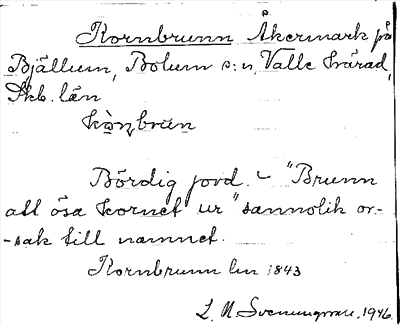 Kornbrunn Åkermark på
Bjällum, Bolum s:n, Valle härad,
Skb. län
Bördig jord. - "Brunn
att ösa kornet ur" sannolik or-
-sak till namnet.
Kornbrunn lm 1843
L. N. Svenungsson. 1946.